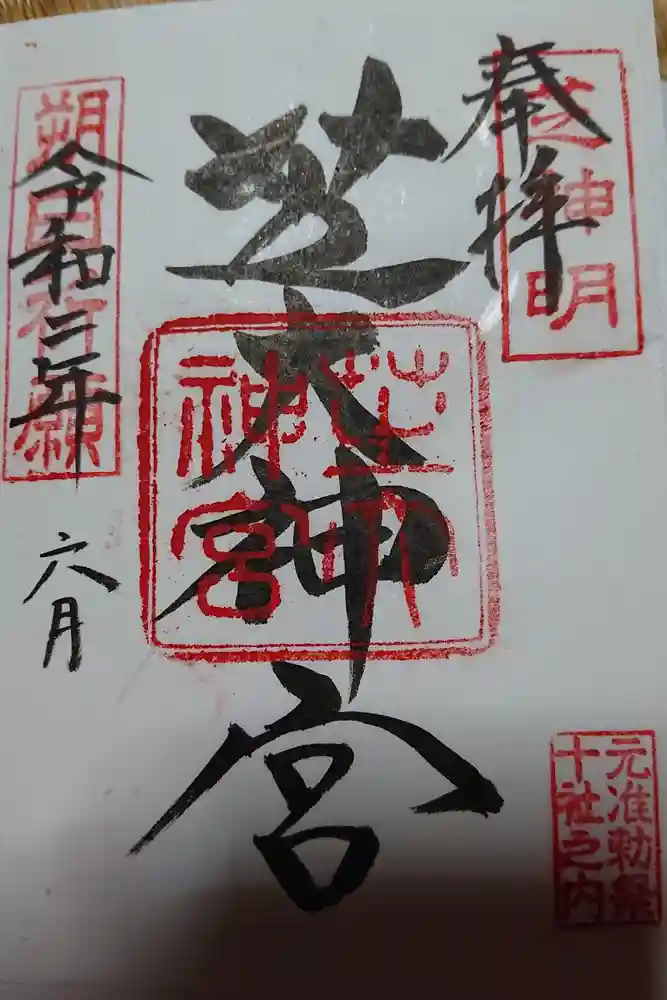 奉拝
芝神明
芝大神宮
芝大
神宮
令和二年
六月
朔日祈願
元准勅祭
十社之内